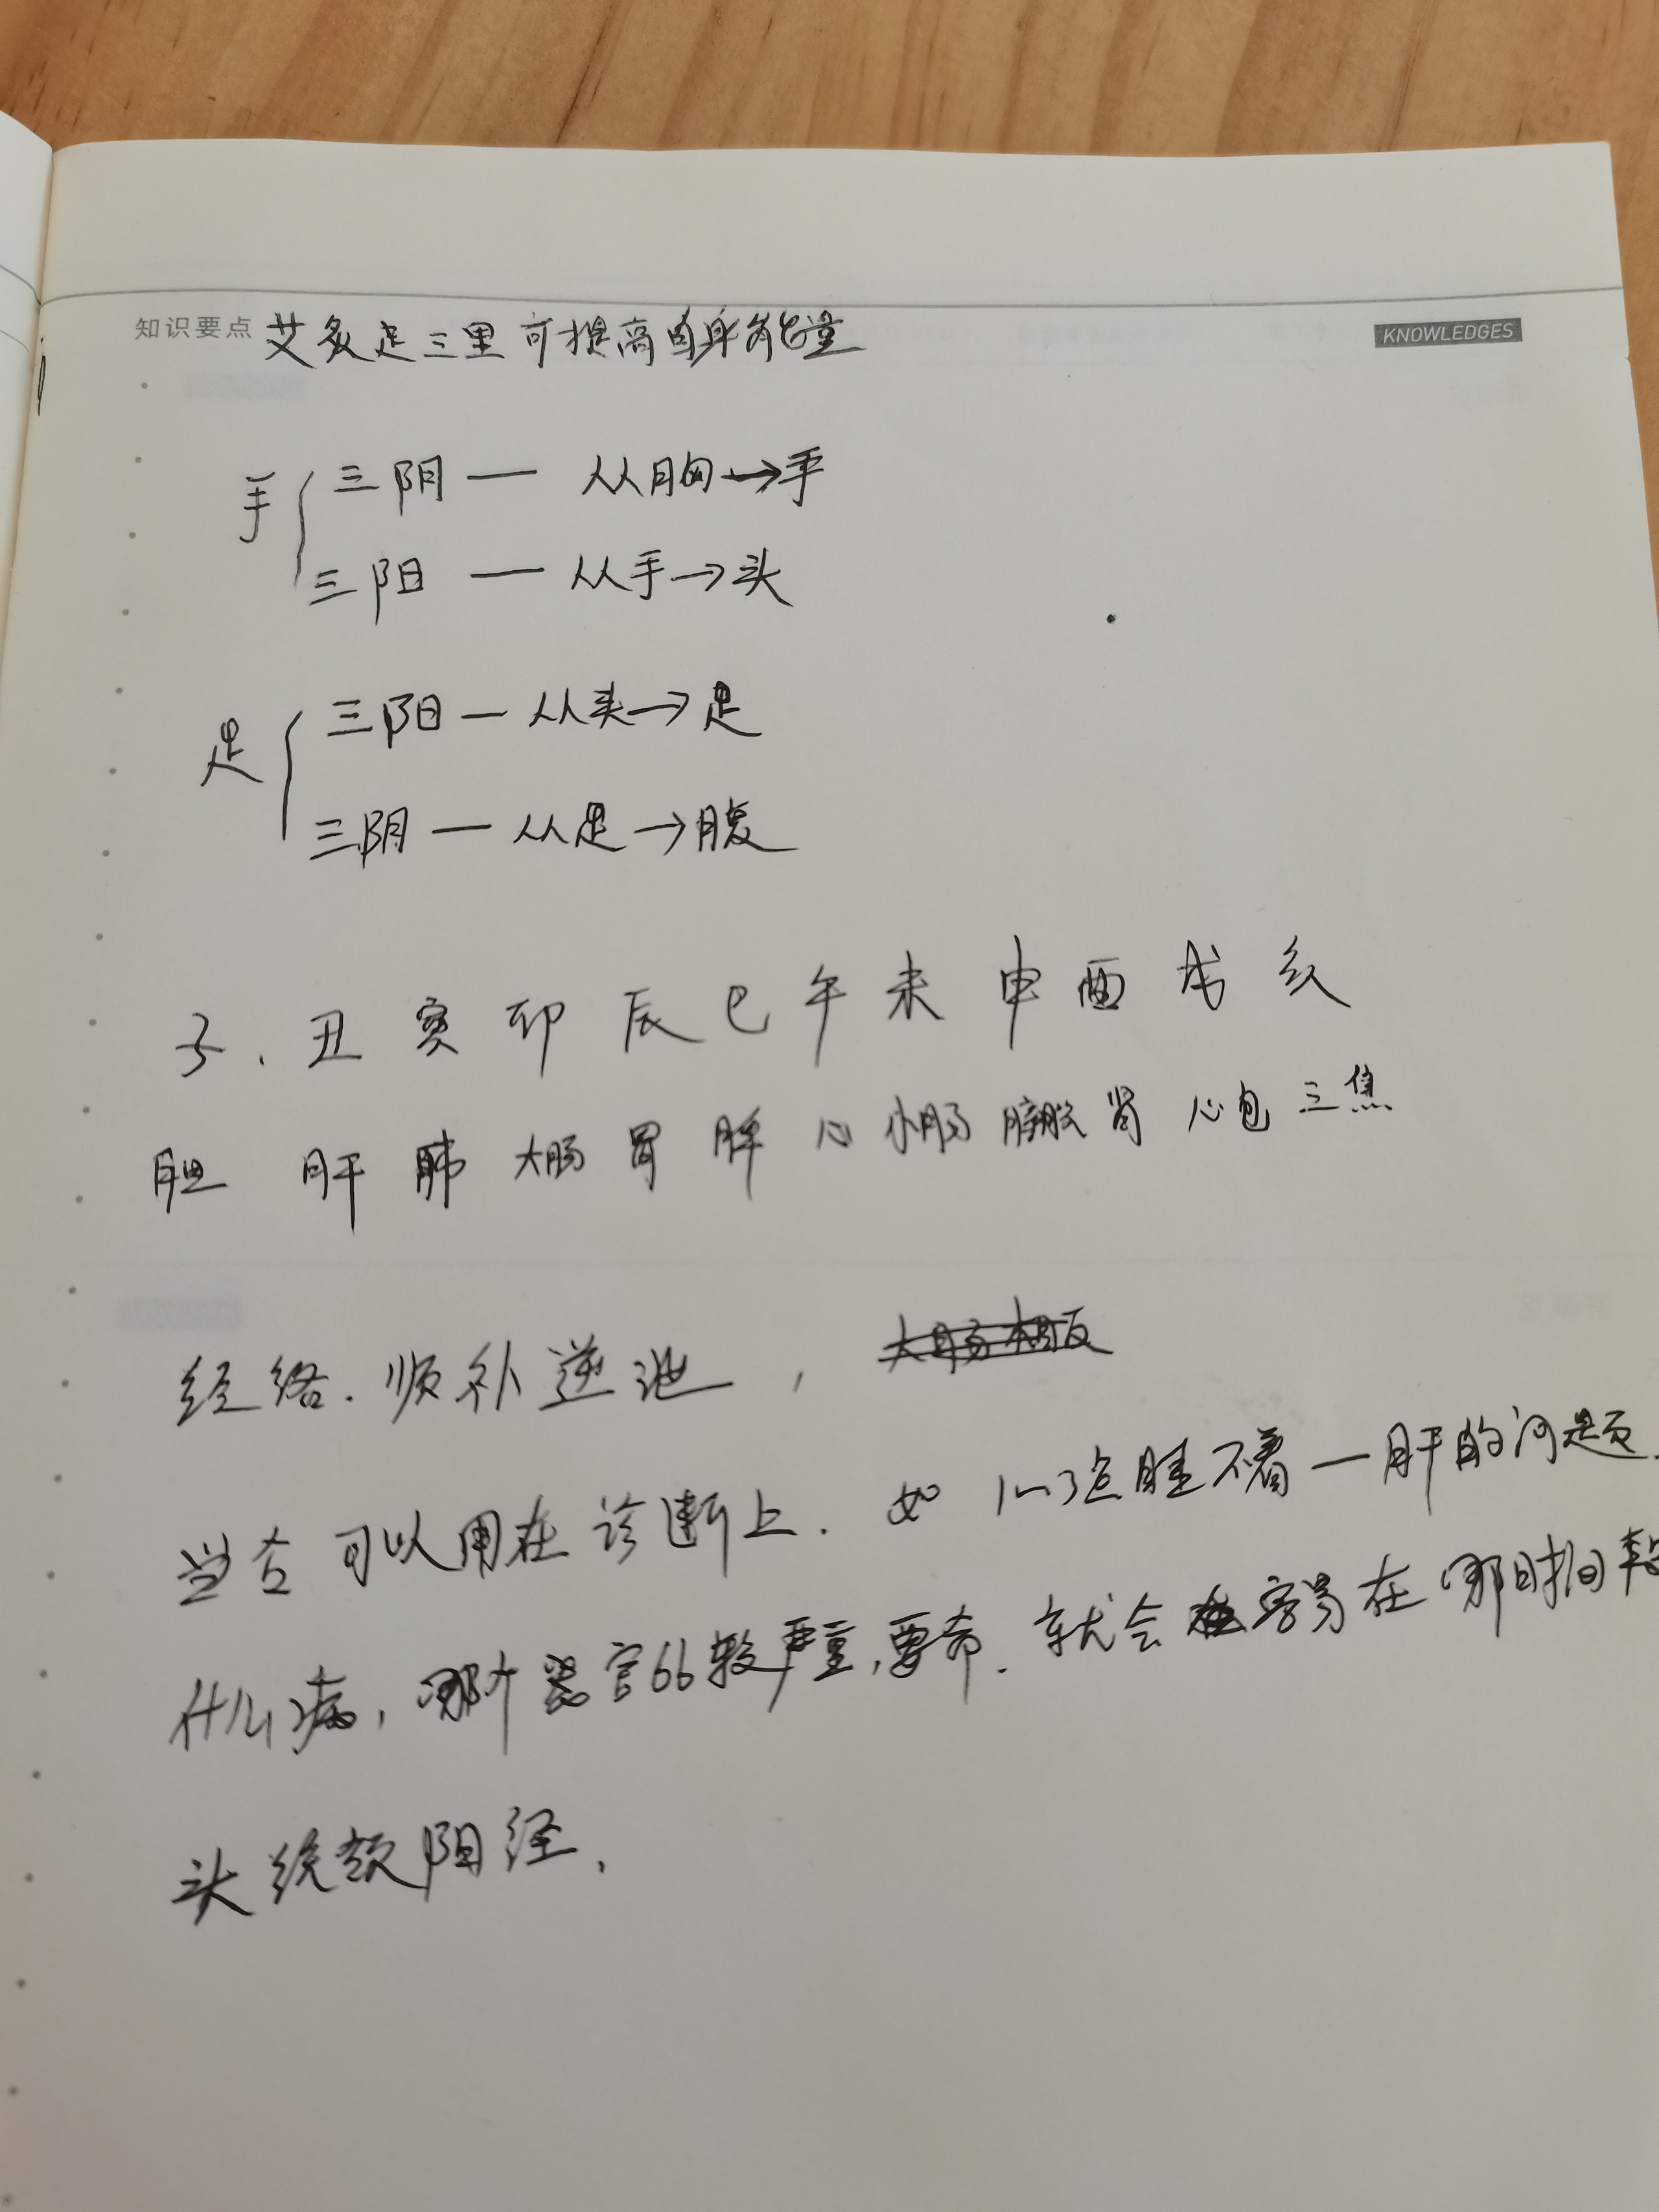 知识要点 艾灸足三里可提高自身能量 KNOWLEDGES
手 三阴 — 从胸→手
三阳 — 从手→头
足 三阳 — 从头→足
三阴 — 从足→腹
子、丑 寅 卯 辰 巳 午 未 申 酉 戌 亥
胆 肝 肺 大肠 胃 脾 心 小肠 膀胱 肾 心包 三焦
经络、顺补逆泄，大肠相反
当右可以用在诊断上、如1~3点睡不着—肝的问题、
什么病，哪个器官比较严重、要命、就会容易在哪时间
头统领阳经、